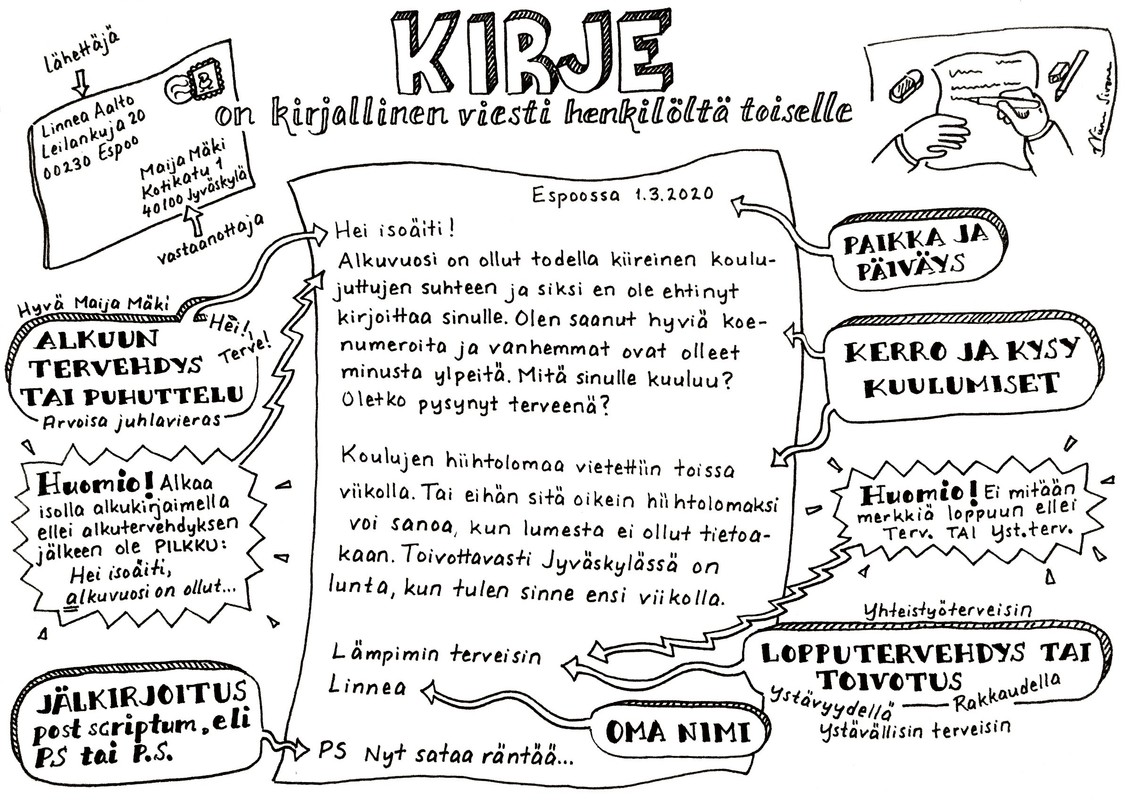 KIRJE
on kirjallinen viesti henkilöltä toiselle
Lähettäjä
Linnea Aalto
Leilankuja 20
00230 Espoo
Maija Mäki
Kotikatu 1
40100 Jyväskylä
vastaanottaja
Espoossa 1.3.2020
Hei isoäiti!
Alkuvuosi on ollut todella kiireinen koulu-
juttujen suhteen ja siksi en ole ehtinyt
kirjoittaa sinulle. Olen saanut hyviä koe-
numeroita ja vanhemmat ovat olleet
minusta ylpeitä. Mitä sinulle kuuluu?
Oletko pysynyt terveenä?
Koulujen hiihtolomaa vietettiin toissa
viikolla. Tai eihän sitä oikein hiihtolomaksi
voi sanoa, kun lumesta ei ollut tietoa-
kaan. Toivottavasti Jyväskylässä on
lunta, kun tulen sinne ensi viikolla.
Lämpimin terveisin
Linnea
PS Nyt sataa räntää...
Hyvä Maija Mäki
Hei!
Terve!
ALKUUN
TERVEHDYS
TAI PUHUTTELU
Arvoisa juhlavieras
Huomio! Alkaa
isolla alkukirjaimella
ellei alkutervehdyksen
jälkeen ole PILKKU:
Hei isoäiti,
alkuvuosi on ollut...
JÄLKIRJOITUS
post scriptum, eli
PS tai P.S.
PAIKKA JA
PÄIVÄYS
KERRO JA KYSY
KUULUMISET
Huomio! Ei mitään
merkkiä loppuun ellei
Terv. TAI Yst.terv.
Yhteistyöterveisin
LOPPUTERVEHDYS TAI
TOIVOTUS
Ystävyydellä
Rakkaudella
Ystävällisin terveisin
OMA NIMI